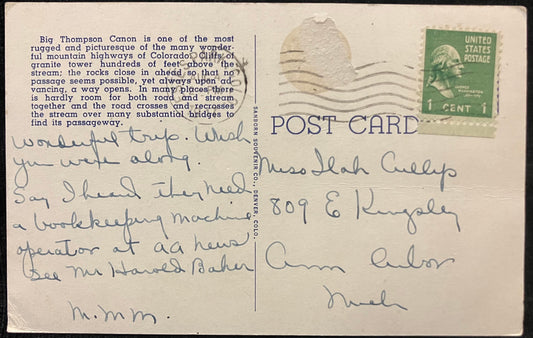 Big Thompson Canon is one of the most
rugged and picturesque of the many wonder-
ful mountain highways of Colorado. Cliffs of
granite tower hundreds of feet above the
stream; the rocks close in ahead so that no
passage seems possible, yet always upon ad-
vancing, a way opens. In many places there
is hardly room for both road and stream
together and the road crosses and recrosses
the stream over many substantial bridges to
find its passageway.
wonderful trip. Wish
you were along.
Say I heard they need
a bookkeeping machine
operator at AA News
see Mr Harold Baker
M.M.M.
SANBORN SOUVENIR CO., DENVER, COLO.
POST CARD
UNITED
STATES
POSTAGE
GEORGE
WASHINGTON
1 CENT 1
Miss Ilah Cullip
809 E Kingsley
Ann Arbor
Mich